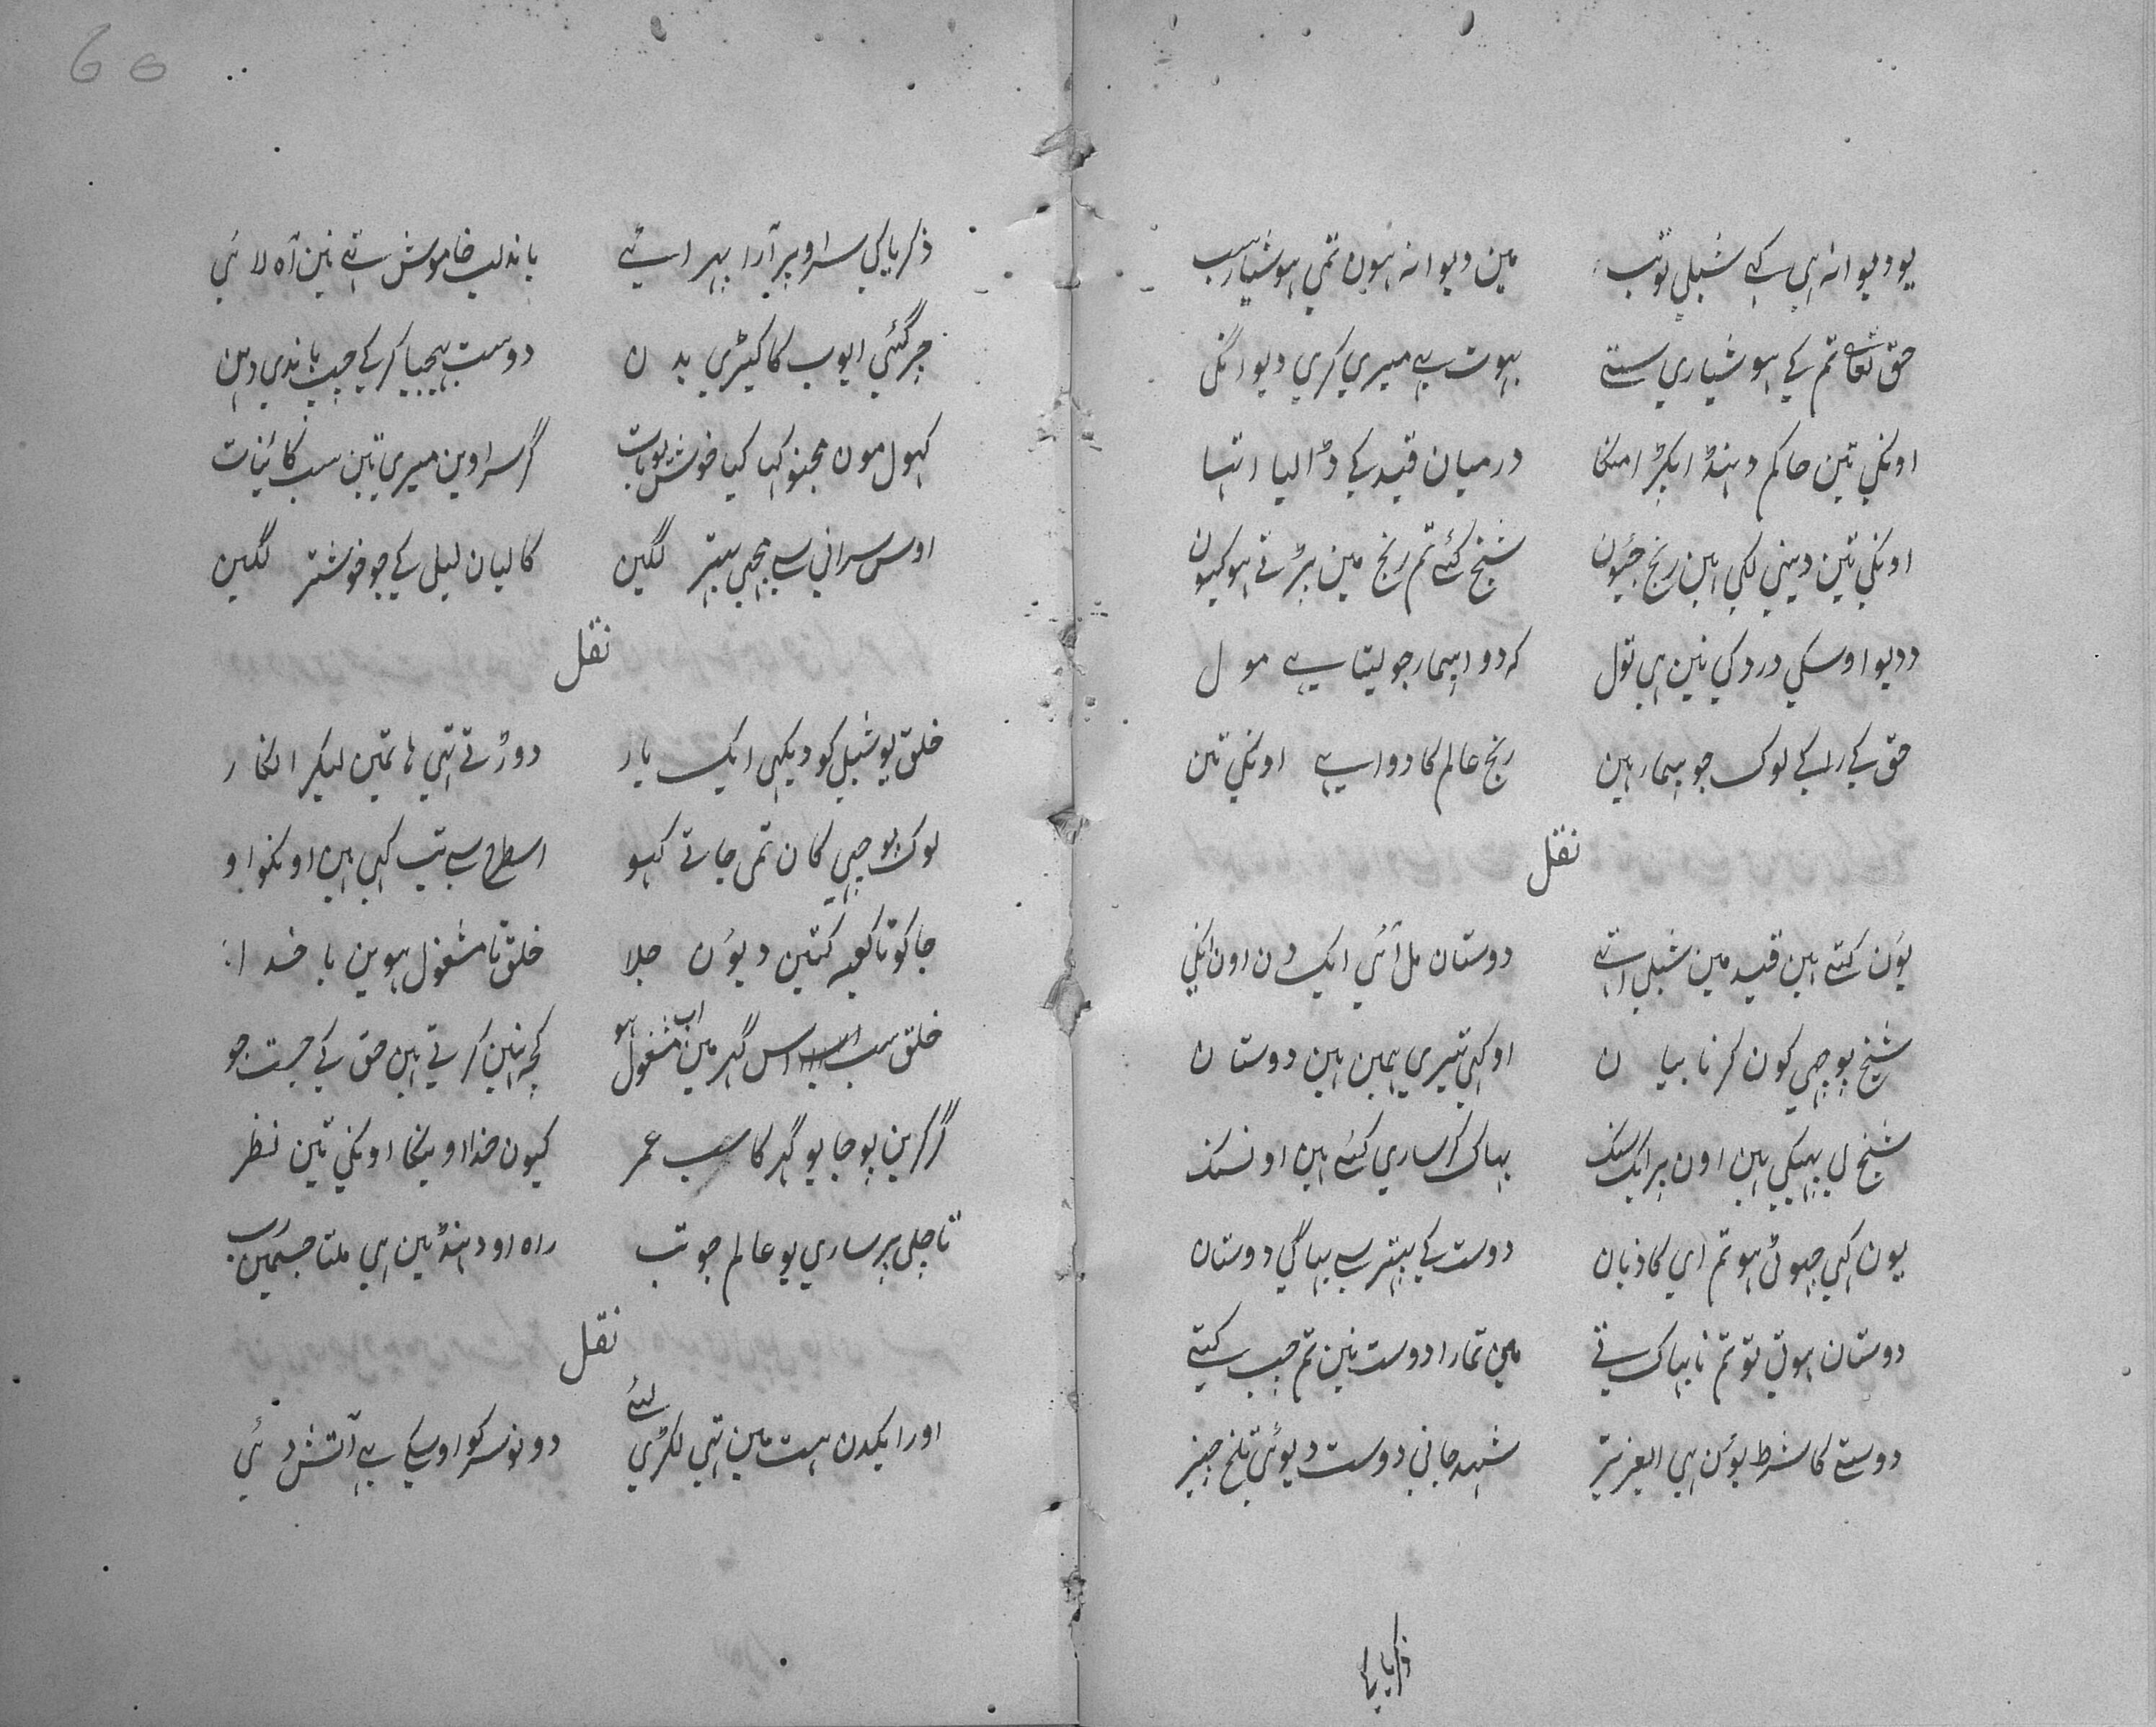 یو دیوانہ ہی کہے شبلی توتب میں دیوانہ ہوں تمی ہوشیار سب
حق تعالی تم کے ہوشیاری ستے بہوت ہے میری کری دیوانگی
اونکی تین حاکم دہنڈا پکڑا منگا درمیان قید کے ڈالیا
اونکی تین دینی لگی ہین رنج جیون شیخ کئے تم رنج مین پڑتے ہو کیون
دیو اوسکی درد کی نین ہی تول کہ دوا بیمار جو لیتا ہے مول
حق کے راہ کے لوک جو بیمار ہین رنج عالم کا دوا ہے اونکی تین
نقل
یون کتے ہین قید مین شبلی اتہے دوستان مل آئی ایک دن اون کنی
شیخ پوچہی کون کرنا بیان او کہی تیری ہمین ہین دوستان
شیخ لی پہیکی ہین اون پر ایک سنک بہاک کر ساری کئے ہین او ننک
یون کہی جہوٹی ہو تم ای کاذبان دوست کے پہتر سے بہاگی دوستان
دوستان ہوتی تو تم نا بہاک تے مین تمارا دوست نین تم جب کتے
دوستے کا شرط یون ہی العزیز شہد جانی دوست دیوئی تلخ چیز
ذکریا کے
60
ذکریا کی سر اوپر آرا پہرائے باندلب خاموش تے نین آہ لائی
چر گئی ایوب کا کیڑی بدن دوست بہیجیا کر کے چپ باندی دہن
کہول مون مجنو کہا کیا خوش یو بات گر سراوین میری تین سب کائنات
اوس سرانی سے مجہی بہتر لگین کالیان لیلی کے جو خوشتر لگین
نقل
خلق یو شبلی کو دیکہی ایک بار دوڑتے تہی ہاتمین لیکر انگار
لوک پوچہی کان تمی جاتے کہو اسطرح سے تب کہی ہین اونکو او
جا کو تا کعبہ کتین دیون جلا خلق تا مشغول ہوین با خدا
خلق سب اس گہر مین اب مشغول ہو کچہ نین کرتے ہین حق کے جست جو
گر کرین پوجا یو گہر کا سب عمر کیون خدا اوینگا اونکی تین نظر
تا چلی پر ساری یو عالم جو تب راہ او دہنڈین ہی ملتا جسمین رب
نقل
اور ایکدن ہت مین تہی لکڑی لئے دونو سر کو اوسکے ہے آتش دئی